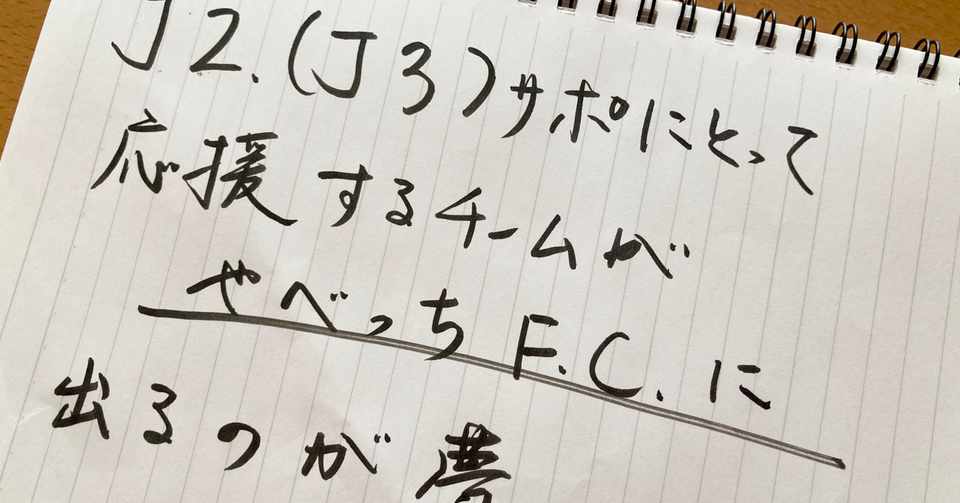 J2.(J3)サポにとって
応援するチームが
やべっちF.C.に
出るのが夢